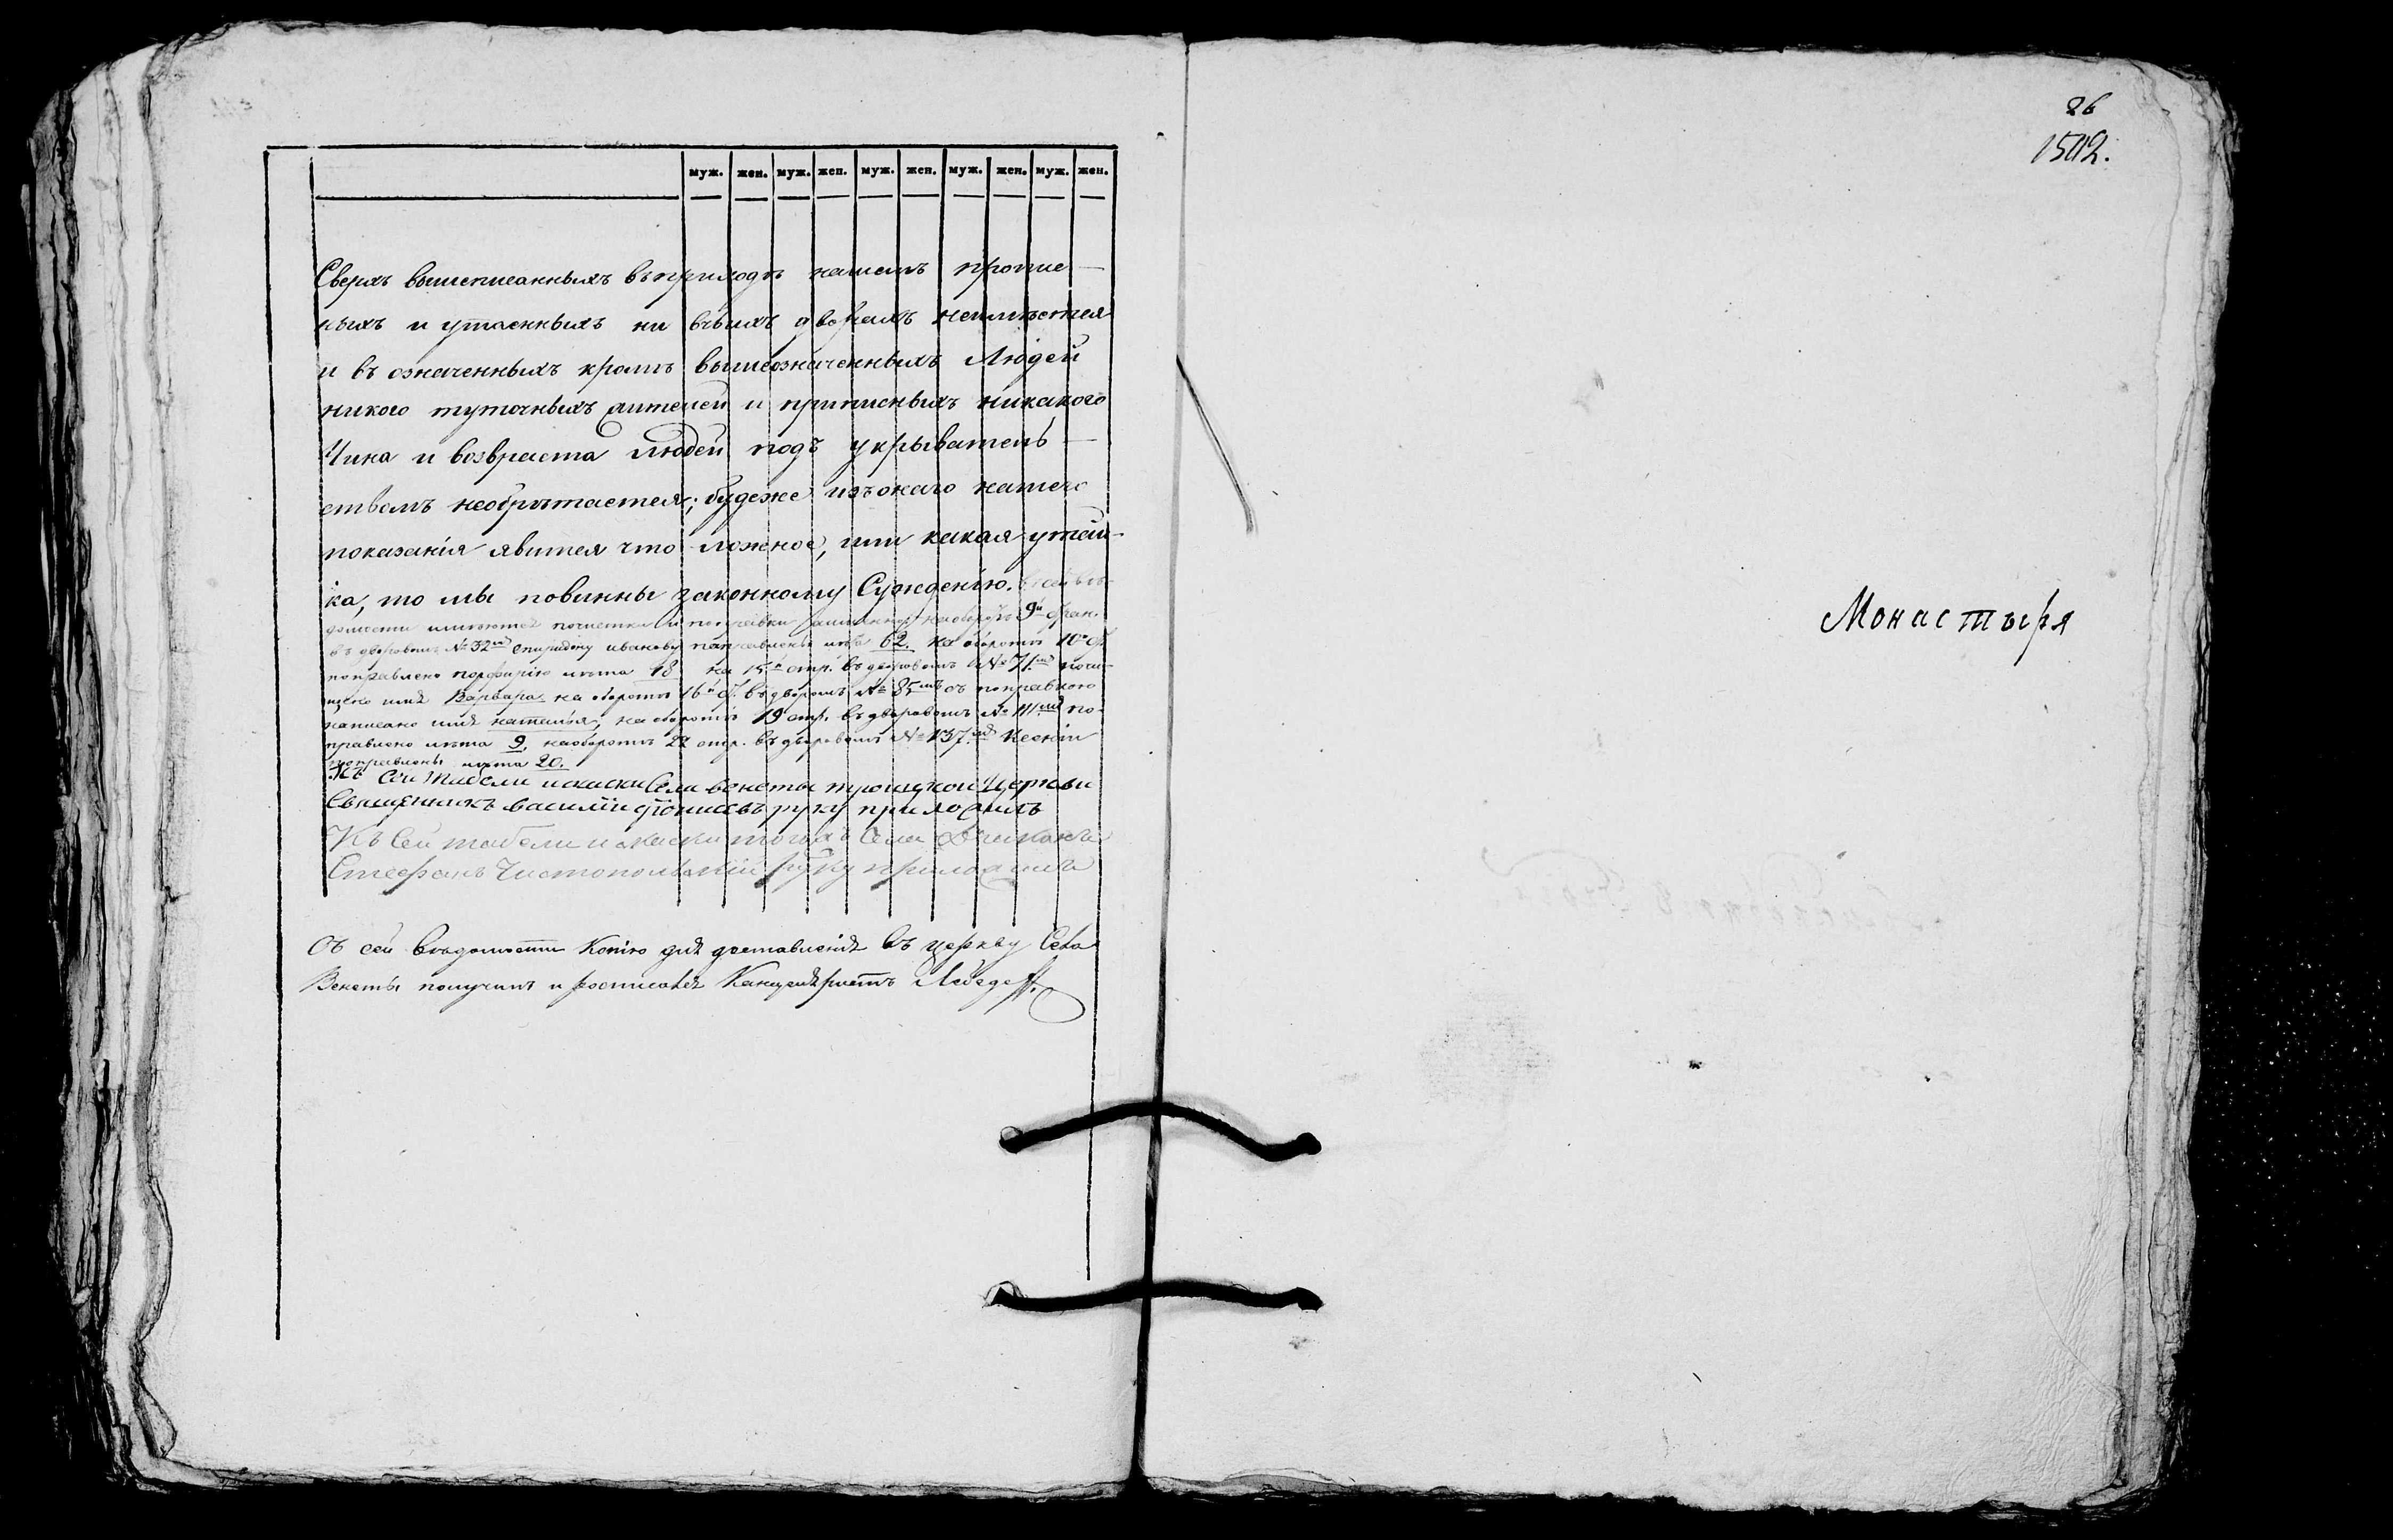 26
1502.
муж. жен. муж. жен. муж. жен. муж. жен. муж. жен.
Сверхъ вышеписанныхъ въ приходѣ нашемъ пропис-
ныхъ и утаенныхъ ни въ чьихъ дворахъ неимѣется
и въ означенныхъ кромѣ вышеозначенныхъ Людей
никого туточныхъ жителей и приписныхъ никакого
Чина и возвраста людей подъ укрыватель-
ствомъ необрѣтается; будеже изъ онаго нашего
показанія явится что ложное, или какая утай-
ка, то мы повинны законному Сужденію. В сей вѣ-
домости имѣются почистки и поправки на оборотѣ 9й стран.
въ дворовомъ № 32мъ спиридону иванову поправлены лѣта 62. на оборотѣ 10й
поправлено порфирію лѣта 18 на 15й стр. въ дворовомъ № 71.мъ почи-
щено имя Варвара на оборотѣ 16й въ дворовомъ № 85мъ съ поправкою
написано имя наталья, на оборотѣ 19 стр. въ дворовомъ № 111.мъ по-
правлено лѣта 9, на оборотѣ 22 стр. въ дворовомъ № 137.мъ Ксеніи
поправлены лѣта 20.
Къ сеи Табели искаски Села венеты троицкои Церкви
Священникъ василіи руку приложилъ
Къ Сеи табели искаски тогожъ Села
Стефанъ Чистопольскій руку приложилъ
Съ сей Вѣдомости Копію для доставленія въ церковь Села
Венеты получилъ и росписался Канцеляристъ Лебедеff.
Монастыря